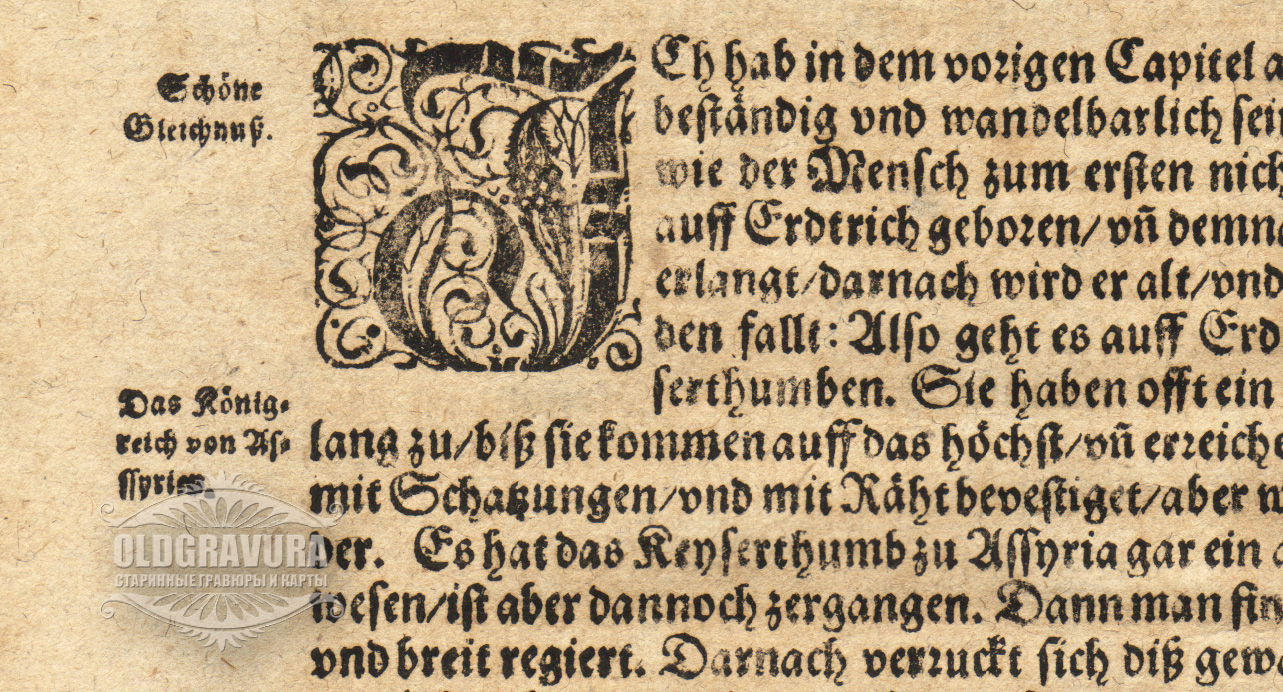 Schöne
Gleichnuß.
Das König-
reich von As-
syrien.
JCh hab in dem vorigen Capitel a
beständig vnd wandelbarlich sei
wie der Mensch zum ersten nic
auff Erdtrich geboren/ vñ demn
erlangt/ darnach wird er alt/ vnd
den fallt: Also geht es auff Erd
serthumben. Sie haben offt ein
lang zu/ biß sie kommen auff das höchst/ vñ erreich
mit Schatzungen/ vnd mit Räht bevestiget/ aber
der. Es hat das Keyserthumb zu Assyria gar ein
wesen/ ist aber dannoch zergangen. Dann man fin
vnd breit regiert. Darnach verruckt sich diß gew
OLDGRAVURA
СТАРИННЫЕ ГРАВЮРЫ И КАРТЫ